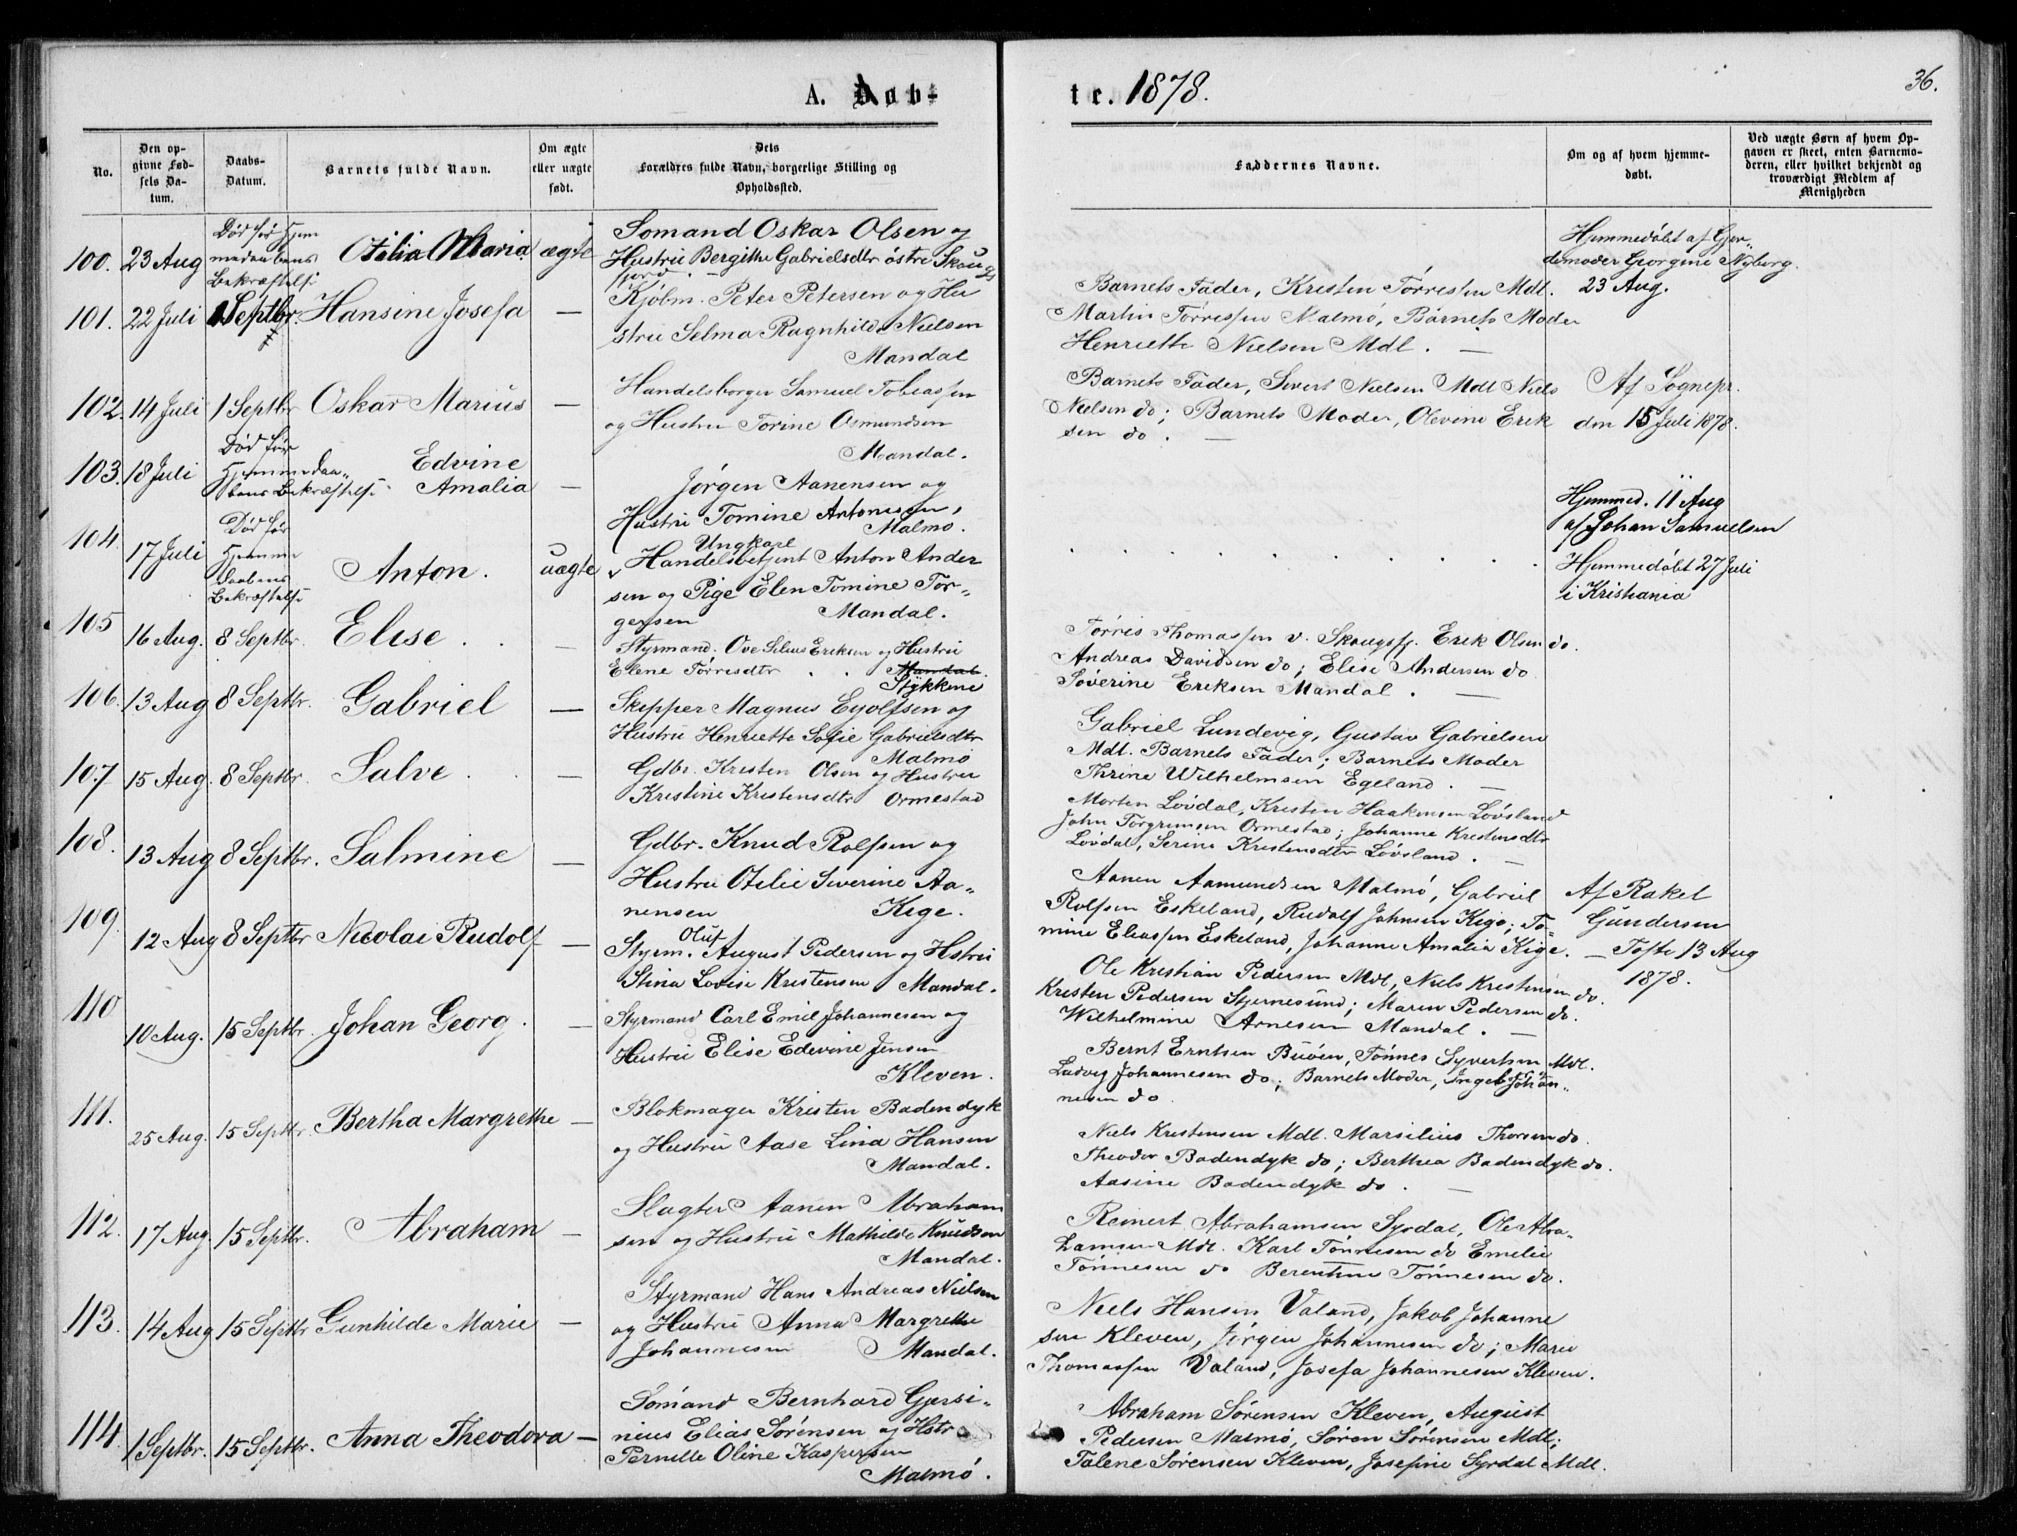 A. Døb-
te. 1878.
36.
No.
Den op-
givne Fød-
sels Da-
tum.
Daabs-
Datum.
Barnets fulde Navn.
Om ægte
eller uægte
født.
Dets
Forældres fulde Navn, borgerlige Stilling og
Opholdssted.
Faddernes Navne.
Om og af hvem hjemme-
døbt.
Ved uægte Børn af hvem Op-
gaven er skeet, enten Barnemo-
deren, eller hvilket bekjendt og
troværdigt Medlem af
Menigheden
100. 23 Aug
Død før Hjem
medaabens
Bekræftelse
Otilia Maria
ægte
Sømand Oskar Olsen og
Hustru Bergithe Gabrielsdtr østre Skougs
fjord.
Hjemmedøbt af Gjor-
demoder Georgine Nyborg.
23 Aug.
101. 22 Juli 1 Septbr. Hansine Josefa —
Kjøbm. Peter Petersen og Hu
stru Selma Ragnhilde Nielsen
Mandal
Barnets Fader, Kristen Tørresen Mdl.
Martin Tørressen Malmø, Barnets Moder
Henriette Nielsen Mdl. —
102. 14 Juli 1 Septbr Oskar Marius —
Handelsborger Samuel Tobiassen
og Hustru Torine Osmundsen
Mandal.
Barnets Fader, Sivert Nielsen Mdl Niels
Nielsen do; Barnets Moder, Olevine Erik
sen do. —
Af Sognepr.
den 15 Juli 1878.
103. 18 Juli
Død før
Hjemmedaa-
bens Bekræftelse
Edvine
Amalia —
Jørgen Aanensen og
Hustru Tomine Antonisen,
Malmø.
Hjemmed. 11 Aug
af Johan Samuelsen
104. 17 Juli
Død før
Hjemme
Daabens
Bekræftelse
Anton.
uægte
Ungkarl
Handelsbetjent Anton Ander
sen og Pige Elen Tomine Tor-
gersen Mandal.
Hjemmedøbt 27 Juli
i Kristiania
105 16 Aug. 8 Septbr. Elise. —
Styrmand. Ove Silius Eriksen og Hustru
Elene Tørresdtr Mandal.
Stykkene
Tørris Thomassen v. Skougsfj. Erik Olsen do.
Andreas Davidsen do; Elise Andersen do
Soverine Eriksen Mandal. —
106. 13 Aug 8 Septbr. Gabriel —
Skipper Magnus Eyolfsen og
Hustru Henriette Sofie Gabrielsdtr
Malmø
Gabriel Lundevig, Gustav Gabrielsen
Mdl. Barnets Fader; Barnets Moder
Thrine Wilhelmsen Egeland. —
107 15 Aug. 8 Septbr. Salve. —
Gdbr. Kristen Olsen og Hustru
Kristine Kristensdtr Ormestad
Morten Løvdal, Kristen Haakensen Løvsland
John Torgrimsen Ormestad; Johanne Kristensdtr
Løvdal, Serine Kristensdtr Løvsland. —
108. 13 Aug 8 Septbr. Salmine —
Gdbr. Knud Rolfsen og
Hustru Otilie Severine Aa-
nensen Kige.
Aanen Aamundsen Malmø, Gabriel
Rolfsen Eskeland, Rudolf Johnsen Kige; To-
mine Eliassen Eskeland, Johanne Amalia Kige. —
Af Rakel
Gundersen
Tofte 13 Aug
1878.
109. 12 Aug 8 Septbr Nicolai Rudolf —
Oluf
Styrm. August Pedersen og Hstru
Stina Lovise Kristensen Mandal.
Ole Kristian Pedersen Mdl, Niels Kristensen do.
Kristen Pedersen Stjernesund; Maren Pedersen do.
Wilhelmine Arnesen Mandal. —
110 10 Aug. 15 Septbr. Johan Georg. —
Styrmand Carl Emil Johannesen og
Hustru Elise Edevine Jensen
Kleven.
Bernt Erntsen Buøen, Tønnes Syvertsen Mdl.
Ludvig Johannesen do; Barnets Moder, Ingeb. Johan-
nesen do
111. 25 Aug. 15 Septbr. Bertha Margrethe —
Blokmager Kristen Badendyk
og Hustru Aase Lina Hansen
Mandal.
Niels Kristensen Mdl. Marsilius Thorsen do.
Theodor Badendyk do; Berthea Badendyk do.
Aasine Badendyk do. —
112. 17 Aug 15 Septbr. Abraham —
Slagter Aanen Abraham
sen og Hustru Mathilde Knudsen
Mandal.
Reinert Abrahamsen Syrdal, Ole Abra-
hamsen Mdl. Karl Tønnesen do Emelie
Tønnesen do Berentine Tønnesen do.
113. 14 Aug 15 Septbr Gunhilde Marie —
Styrmand Hans Andreas Nielsen
og Hustru Anna Margrethe
Johannesen Mandal.
Niels Hansen Valand, Jakob Johanne
sen Kleven, Jørgen Johannesen do; Marie
Thomassen Valand, Josefa Johannesen Kleven.
114. 1 Septbr. 15 Septbr. Anna Theodora —
Sømand Bernhard Gjersi-
nius Elias Sørensen og Hstr
Pernille Oline Kaspersen
Malmø.
Abraham Sørensen Kleven, August
Pedersen Malmø, Søren Sørensen Mdl;
Talene Sørensen Kleven, Josefine Syrdal Mdl.